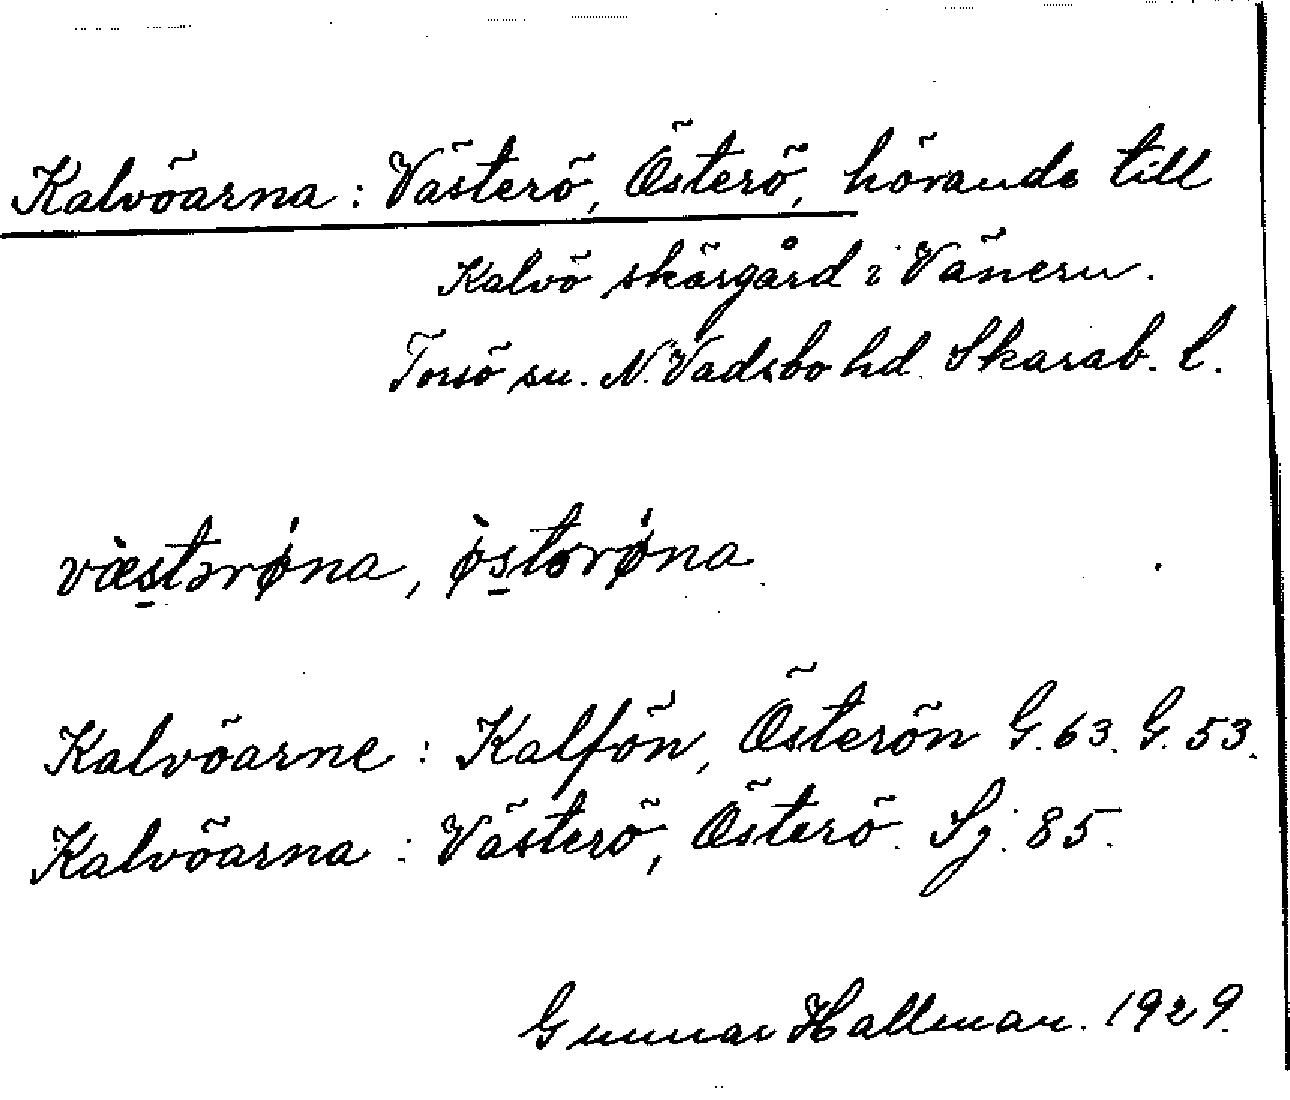 Kalvöarna: Västerö, Österö, hörande till
Kalvö skärgård i Vänern.
Torsö sn. N. Vadsbo hd. Skarab. l.
vὰstərǿna, ø̀stərǿna
Kalvöarne: Kalfön, Österön G. 63. G. 53.
Kalvöarna: Västerö, Österö. Sj. 85.
Gunnar Hallman. 1929.